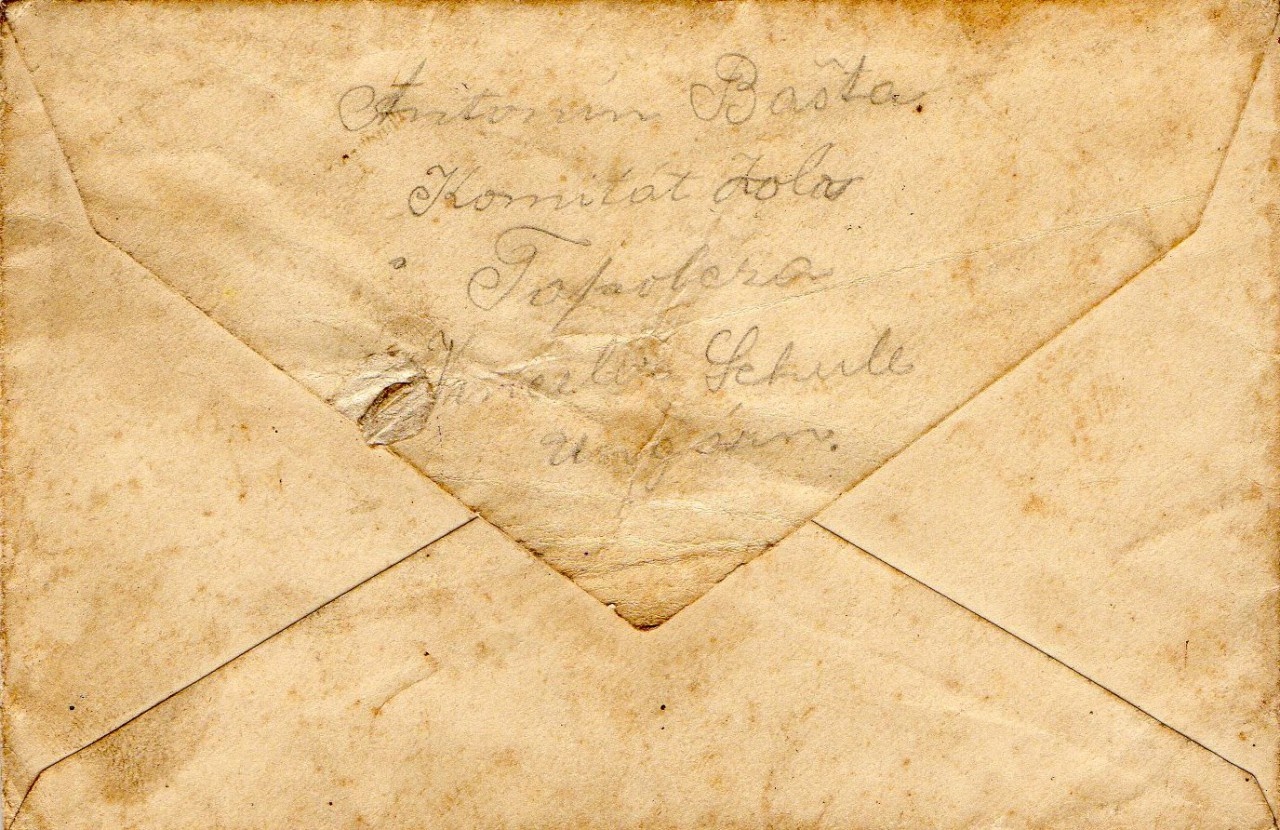 Antonín Bašta
Komitát Zola
Topolcza
Schule
Ungarn.